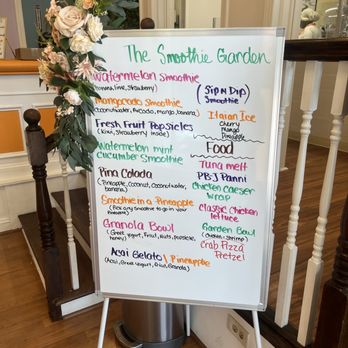 The Smoothie Garden
Watermelon Smoothie
(banana, lime, strawberry)
Mangocado Smoothie
(Avocado, Coconutwater, mango, banana)
Fresh Fruit Popsicles
(kiwi, strawberry inside)
Watermelon mint
Cucumber Smoothie
Pina Colada
(Pineapple, Coconut, Coconutwater,
banana)
Smoothie in a Pineapple
(Pick any smoothie to go in your
Pineapple)
Granola Bowl
(Greek yogurt, Fruit, nuts, popsicle,
honey)
Acai Gelato | Pineapple
(Acai, Greek yogurt, Fruit, Granola)
(Sip N Dip)
Smoothie
Italian Ice
Cherry
Mango
Pineapple
Food
Tuna melt
PB&J Panni
Chicken Caeser
wrap
Classic chicken
lettuce
Garden Bowl
(chicken - shrimp)
Crab Pizza
Pretzel